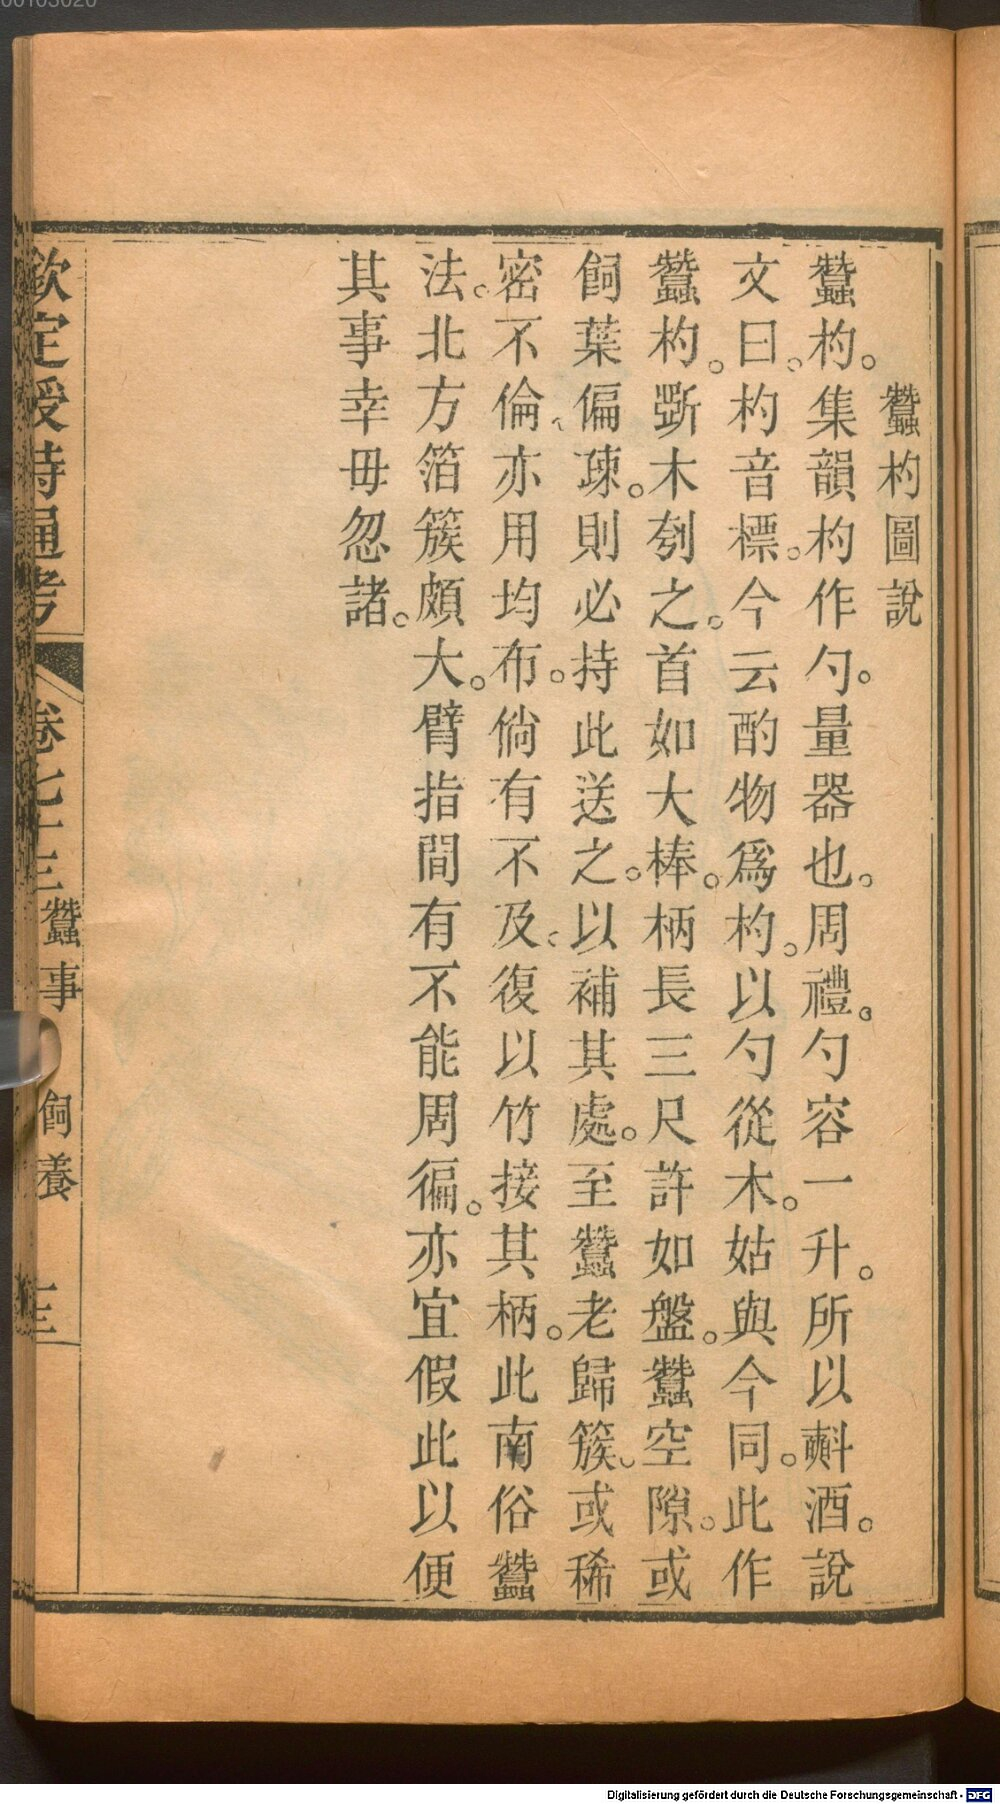 蠶杓圖說
蠶杓。集韻杓作勺。量器也。周禮。勺容一升。所以㪺酒。說
文曰。杓音標。今云酌物爲杓。以勺從木。姑與今同。此作
蠶杓。斲木刳之。首如大棒。柄長三尺許如盤。蠶空隙。或
飼葉偏疎。則必持此送之。以補其處。至蠶老歸簇。或稀
密不倫、亦用均布。倘有不及。復以竹接其柄。此南俗蠶
法。北方箔簇頗大。臂指間有不能周徧。亦宜假此以便
其事幸毋忽諸。
欽定授時通考 卷七十三蠶事 飼養 三
Digitalisierung gefördert durch die Deutsche Forschungsgemeinschaft - DFG